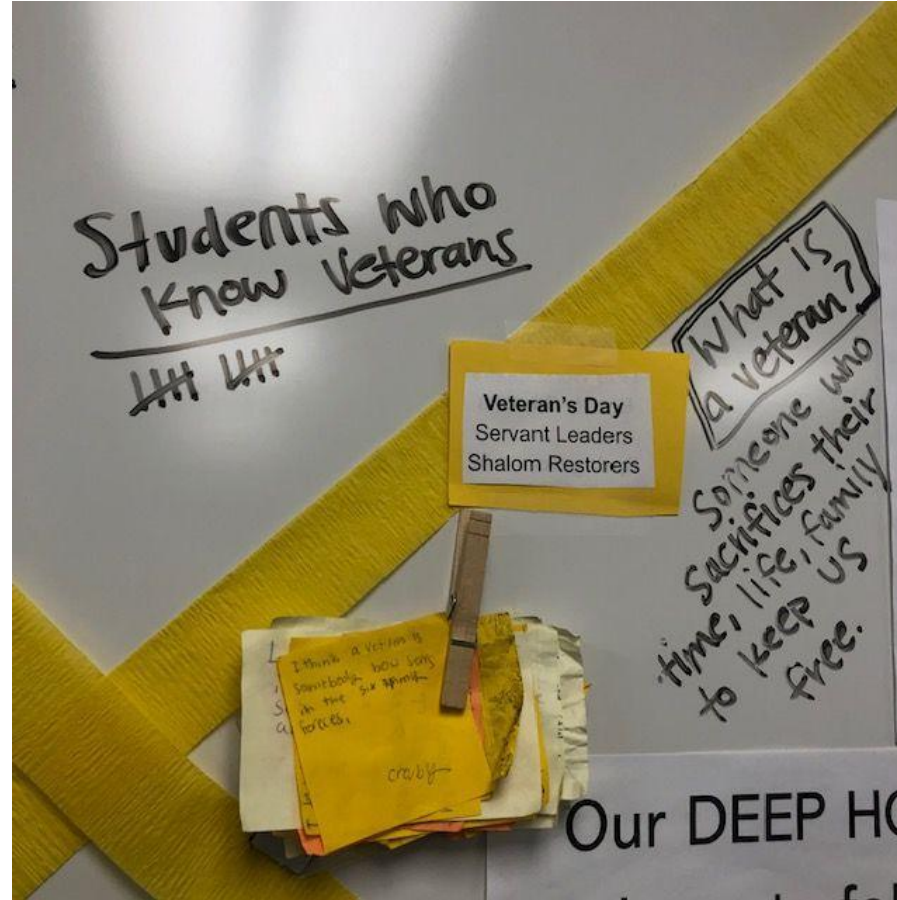 Students who
Know Veterans
Veteran's Day
Servant Leaders
Shalom Restorers
What is
a veteran?
Someone who
sacrifices their
time, life, family
to keep us
free.
I think a
somebody how
in the six
forces.
Our DEEP